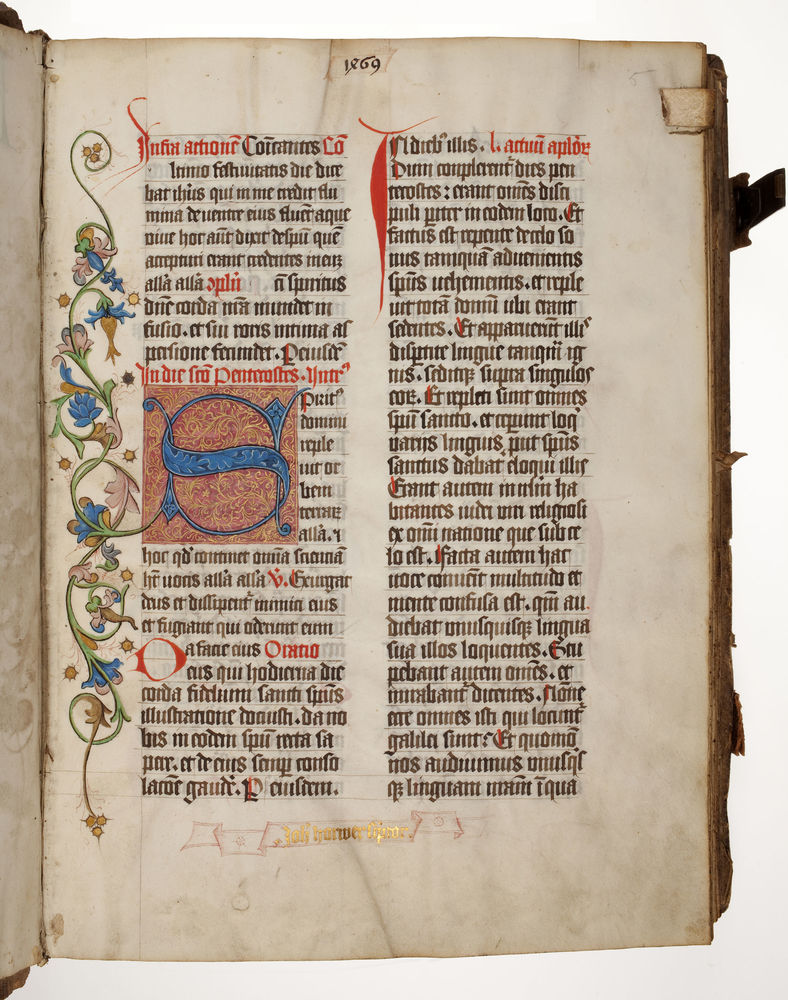 1869
Infra actionē Cōīcantes Cō
ltimo festiuitatis die dice
bat ihūs qui in me credit flu
mina de uentre eius fluēt aque
viue hoc aūt dixit de spū quē
accepturi erant credentes in eū
allā allā ɔplīn ti spiritus
dn̄e corda nr̄a mundet in
fusio. et sui roris intima as
persione fecundet. P eiusdē
In die scō Pentecostes. Intrꝰ
Spiritꝰ
domini
reple
uit or
bem
terraꝝ
allā. ⁊
hoc qd̄ continet om̄ia scientiā
hꝫ uocis allā allā V̄. Exurgat
deus et dissipent̄ inimici eius
et fugiant qui oderunt eum
a facie eius Oratio
Deus qui hodierna die
corda fidelium sancti spūs
illustratione docuisti. da no
bis in eodem spū recta sa
pere. et de eius semp̄ conso
lacōe gaudē. P eiusdem.
In diebꝰ illis. l. actuū aplōꝝ
Dum complerent̄ dies pen
tecostes : erant om̄es disci
puli pariter in eodem loco. Et
factus est repente de celo so
nus tanquā aduenientis
spūs uehementis. et reple
uit totā domū ubi erant
sedentes. Et apparuerūt illiꝰ
dispertite lingue tanquā ig
nis. seditqꝫ supra singulos
eoꝝ. Et repleti sunt omnes
spū sancto. et ceperunt loq̄
varijs linguis, put spūs
sanctus dabat eloqui illis
Erant autem in ihrlm ha
bitantes iudei viri religiosi
ex om̄i natione que sub ce
lo est. Facta autem hac
uoce conuēit multitudo et
mente confusa est. qm̄ au
diebat vnusquisqꝫ lingua
sua illos loquentes. Stu
pebant autem om̄es. et
mirabant̄ dicentes. Nōne
ecce omnes isti qui locunt̄
galilei sunt? Et quomō
nos audiuimus vnusqꝫ
qꝫ linguam nr̄am ī qua